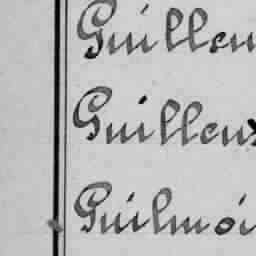 Guilleu
Guilleux
Guilmoi